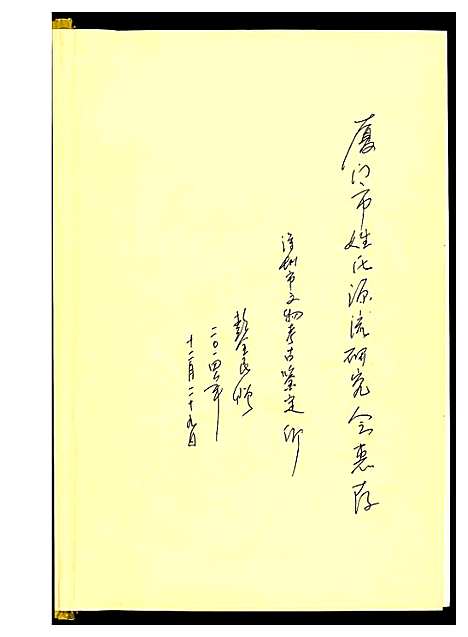 厦门市姓氏源流研究会惠存
漳州市文物考古鉴定所
彭金民赠
二〇一四年
十二月二十九日